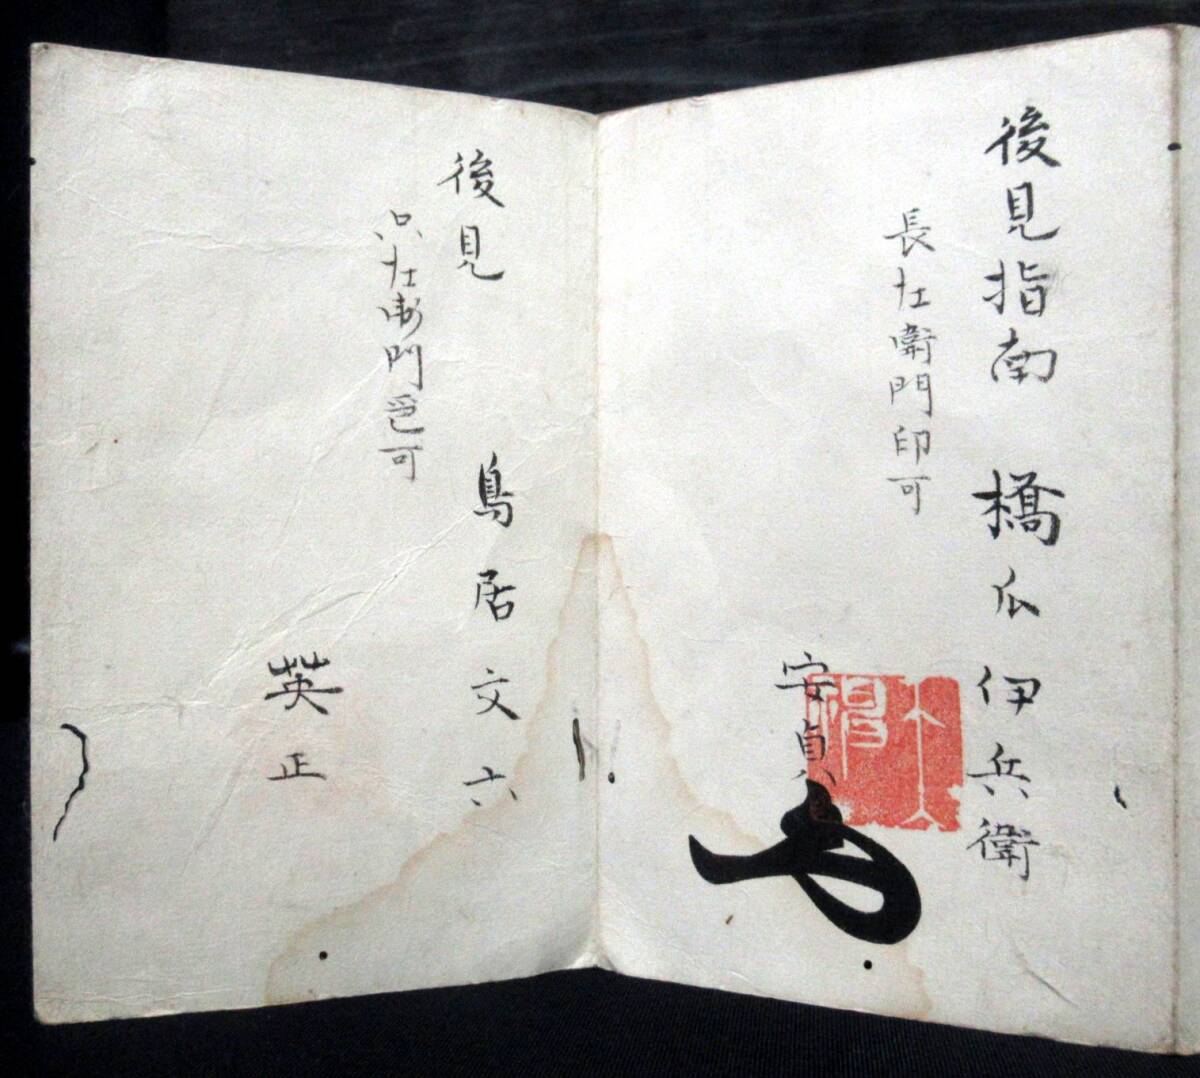 後見指南 橋爪伊兵衛
長左衛門印可
安貞
後見 鳥居文六
左衛門印可
英正